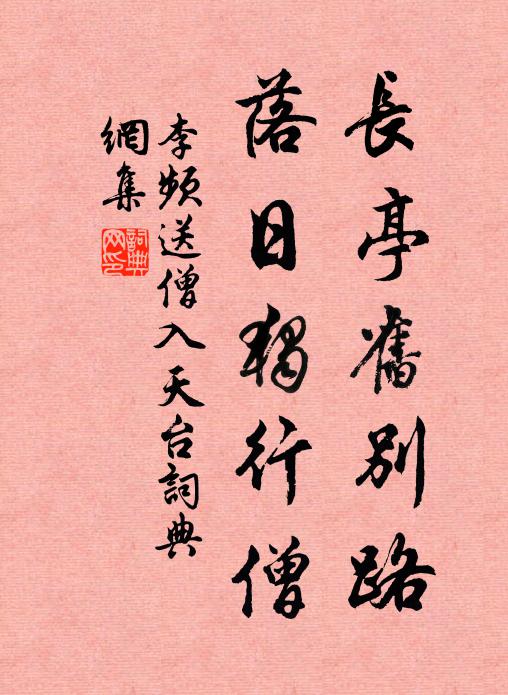 長亭舊別路
落日獨行僧
李頻送僧入天台詞典
網集
詞典網印